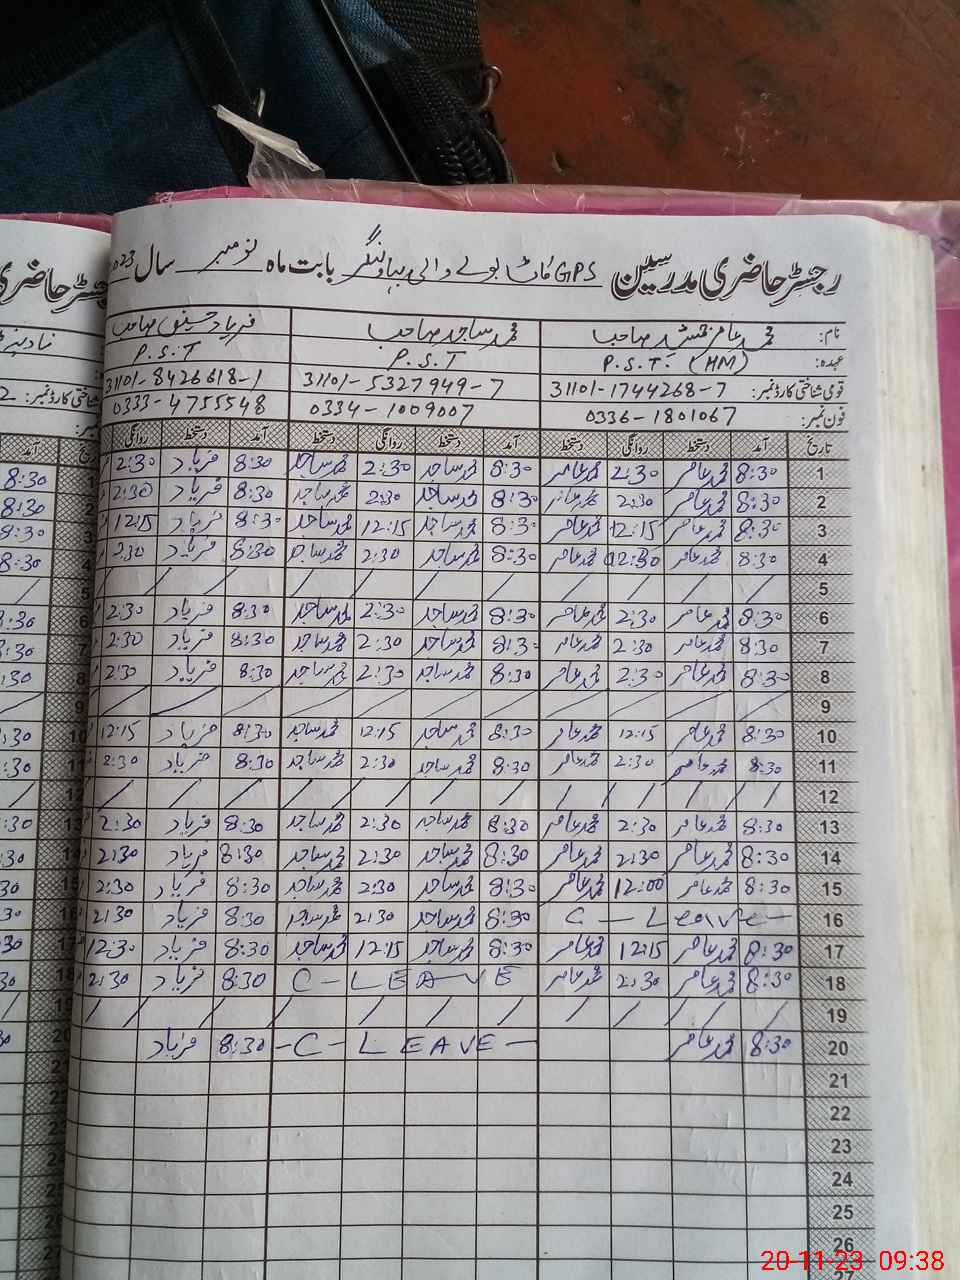 رجسٹر حاضری مدرسین GPS بابت ماہ نومبر سال 2023
نام: محمد عامر جمشید صاحب محمد ساجد صاحب فریاد حسین صاحب
عہدہ: P.S.T. (HM) P.S.T P.S.T
قومی شناختی کارڈ نمبر: 31101-1744268-7 31101-5327949-7 31101-8426618-1
فون نمبر: 0336-1801067 0334-1009007 0333-4755548
تاریخ آمد دستخط روانگی دستخط آمد دستخط روانگی دستخط آمد دستخط روانگی
1 8:30 محمد عامر 2:30 محمد عامر 8:30 محمد ساجد 2:30 محمد ساجد 8:30 فریاد 2:30
2 8:30 محمد عامر 2:30 محمد عامر 8:30 محمد ساجد 2:30 محمد ساجد 8:30 فریاد 2:30
3 8:30 محمد عامر 12:15 محمد عامر 8:30 محمد ساجد 12:15 محمد ساجد 8:30 فریاد 12:15
4 8:30 محمد عامر 2:30 محمد عامر 8:30 محمد ساجد 2:30 محمد ساجد 8:30 فریاد 2:30
5 / / / / / / / / / / /
6 8:30 محمد عامر 2:30 محمد عامر 8:30 محمد ساجد 2:30 محمد ساجد 8:30 فریاد 2:30
7 8:30 محمد عامر 2:30 محمد عامر 8:30 محمد ساجد 2:30 محمد ساجد 8:30 فریاد 2:30
8 8:30 محمد عامر 2:30 محمد عامر 8:30 محمد ساجد 2:30 محمد ساجد 8:30 فریاد 2:30
9 / / / / / / / / / / /
10 8:30 محمد عامر 12:15 محمد عامر 8:30 محمد ساجد 12:15 محمد ساجد 8:30 فریاد 12:15
11 8:30 محمد عامر 2:30 محمد عامر 8:30 محمد ساجد 2:30 محمد ساجد 8:30 فریاد 2:30
12 / / / / / / / / / / /
13 8:30 محمد عامر 2:30 محمد عامر 8:30 محمد ساجد 2:30 محمد ساجد 8:30 فریاد 2:30
14 8:30 محمد عامر 2:30 محمد عامر 8:30 محمد ساجد 2:30 محمد ساجد 8:30 فریاد 2:30
15 8:30 محمد عامر 12:00 محمد عامر 8:30 محمد ساجد 2:30 محمد ساجد 8:30 فریاد 2:30
16 C - Leave - 8:30 محمد ساجد 2:30 محمد ساجد 8:30 فریاد 2:30
17 8:30 محمد عامر 12:15 محمد عامر 8:30 محمد ساجد 12:15 محمد ساجد 8:30 فریاد 12:30
18 8:30 محمد عامر 2:30 محمد عامر C - LEAVE 8:30 فریاد 2:30
19 / / / / / / / / / / /
20 8:30 محمد عامر - C - LEAVE - 8:30 فریاد
21
22
23
24
25
26
27
20-11-23 09:38